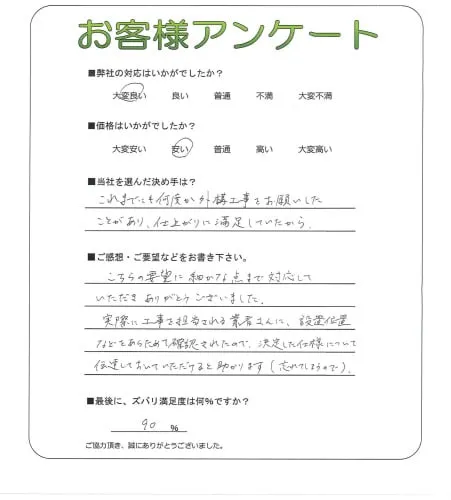 お客様アンケート
■弊社の対応はいかがでしたか？
大変良い 良い 普通 不満 大変不満
■価格はいかがでしたか？
大変安い 安い 普通 高い 大変高い
■当社を選んだ決め手は？
これまでにも何度か外構工事をお願いした
ことがあり、仕上がりに満足していたから。
■ご感想・ご要望などをお書き下さい。
こちらの要望に細かな点まで対応して
いただきありがとうございました。
実際に工事を担当される業者さんに、設置位置
などをあらためて確認されたので、決定した仕様について
伝達しておいていただけると助かります(忘れてしまうので)。
■最後に、ズバリ満足度は何%ですか？
90 %
ご協力頂き、誠にありがとうございました。